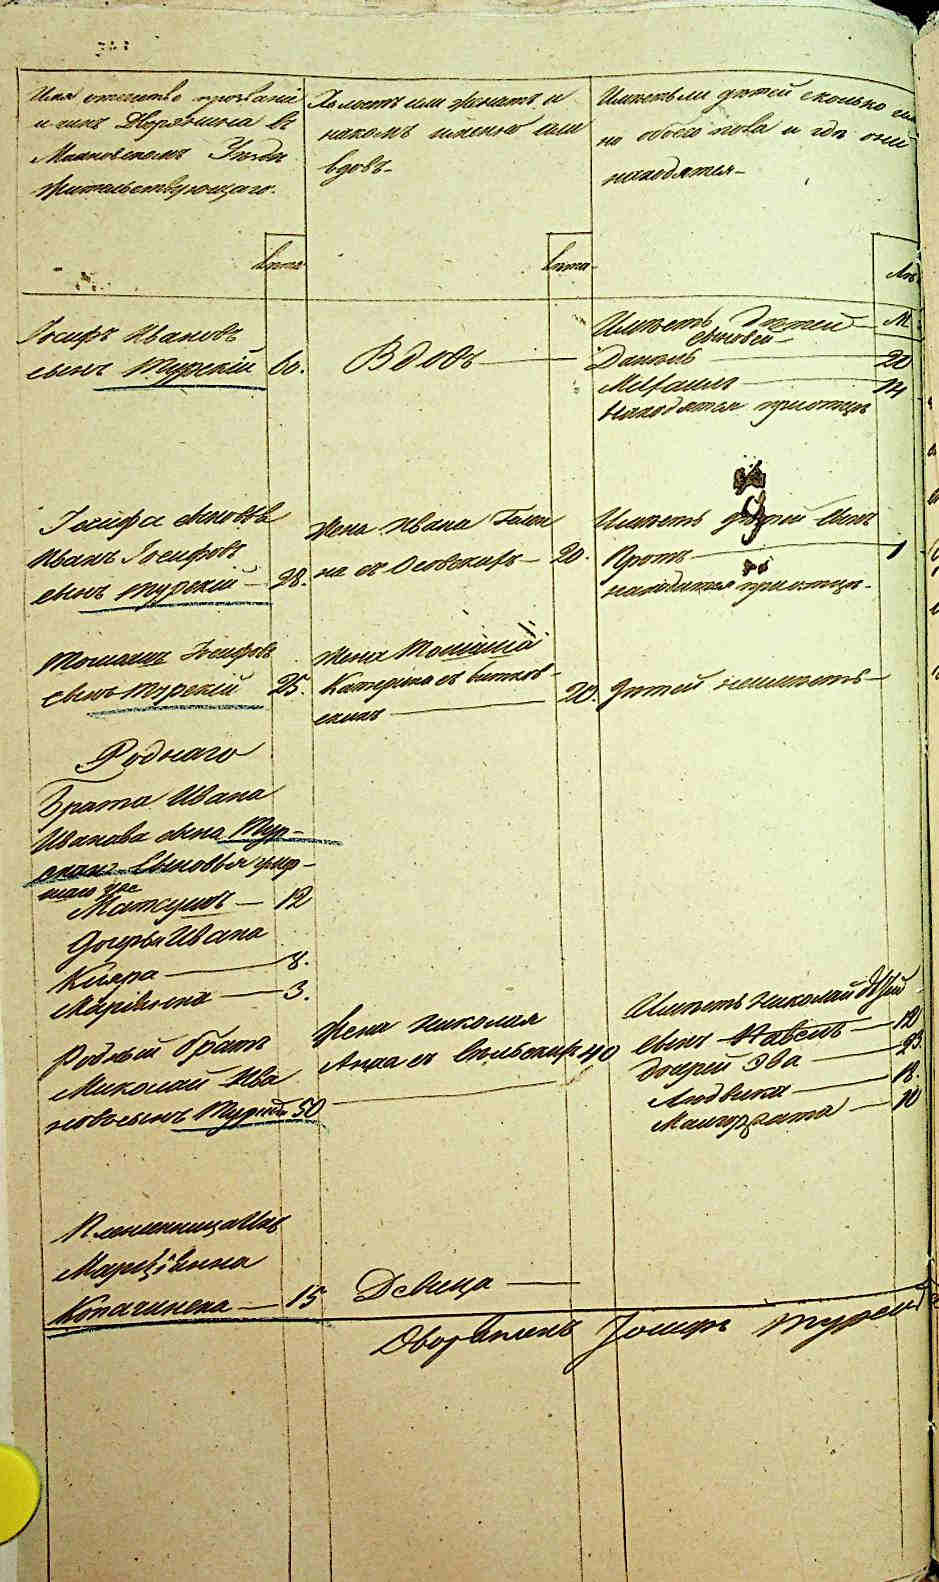 Имя отчество прозваніе
и чинъ Дворянина въ
Махновскомъ Уезде
жительствующаго.
Лета
Холостъ или женатъ и
на комъ имянно или
вдовъ
Лета
Имеетъ ли детей сколько
но обоего пола и где они
находятся
М
Іосифъ Ивановъ
сынъ Турскій 60.
Вдовъ
Имеетъ Детей
сыновей
Даниль 20
Михаилъ 14
находятся при отце
Іосифа сыновья
Иванъ Іосифовъ
сынъ Турскій 28.
Жена Ивана Гелен
на съ Осовскихъ 20.
Имеетъ детей Сынъ
Протъ 1
находится при отце
Томашъ Іосифовъ
сынъ Турскій 25.
Жена Томаша
Катерина съ Витков
скихъ 20.
Детей неимеетъ
Роднаго
Брата Ивана
Иванова сына Тур-
скаго Сыновья
Матеушъ 12
Дочерья Ивана
Кляра 8.
Маріянна 3.
Родный братъ
Миколай Ива
новъ сынъ Турскій 50
Жена Николая
Анна съ Сельскихъ 40
Имеетъ Николай Детей
сынъ Павелъ 12
дочерей Эва 23
Людвика 18.
Малгоржата 10
Племенница Ихъ
Маріянна
Копачинска 15
Девица
Дворянинъ Іосифъ Турскій